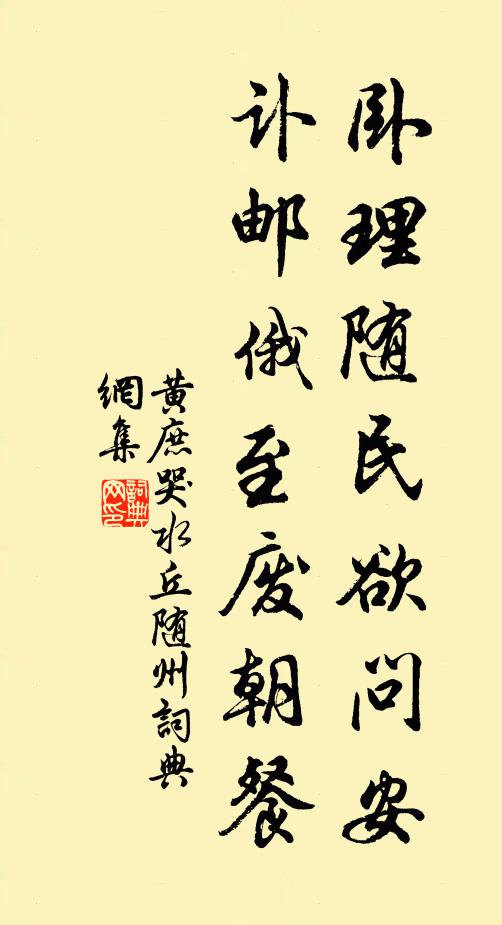 卧理随民欲问安
讣邮俄至废朝餐
黄庶哭水丘随州詞典
網集
詞典
网印